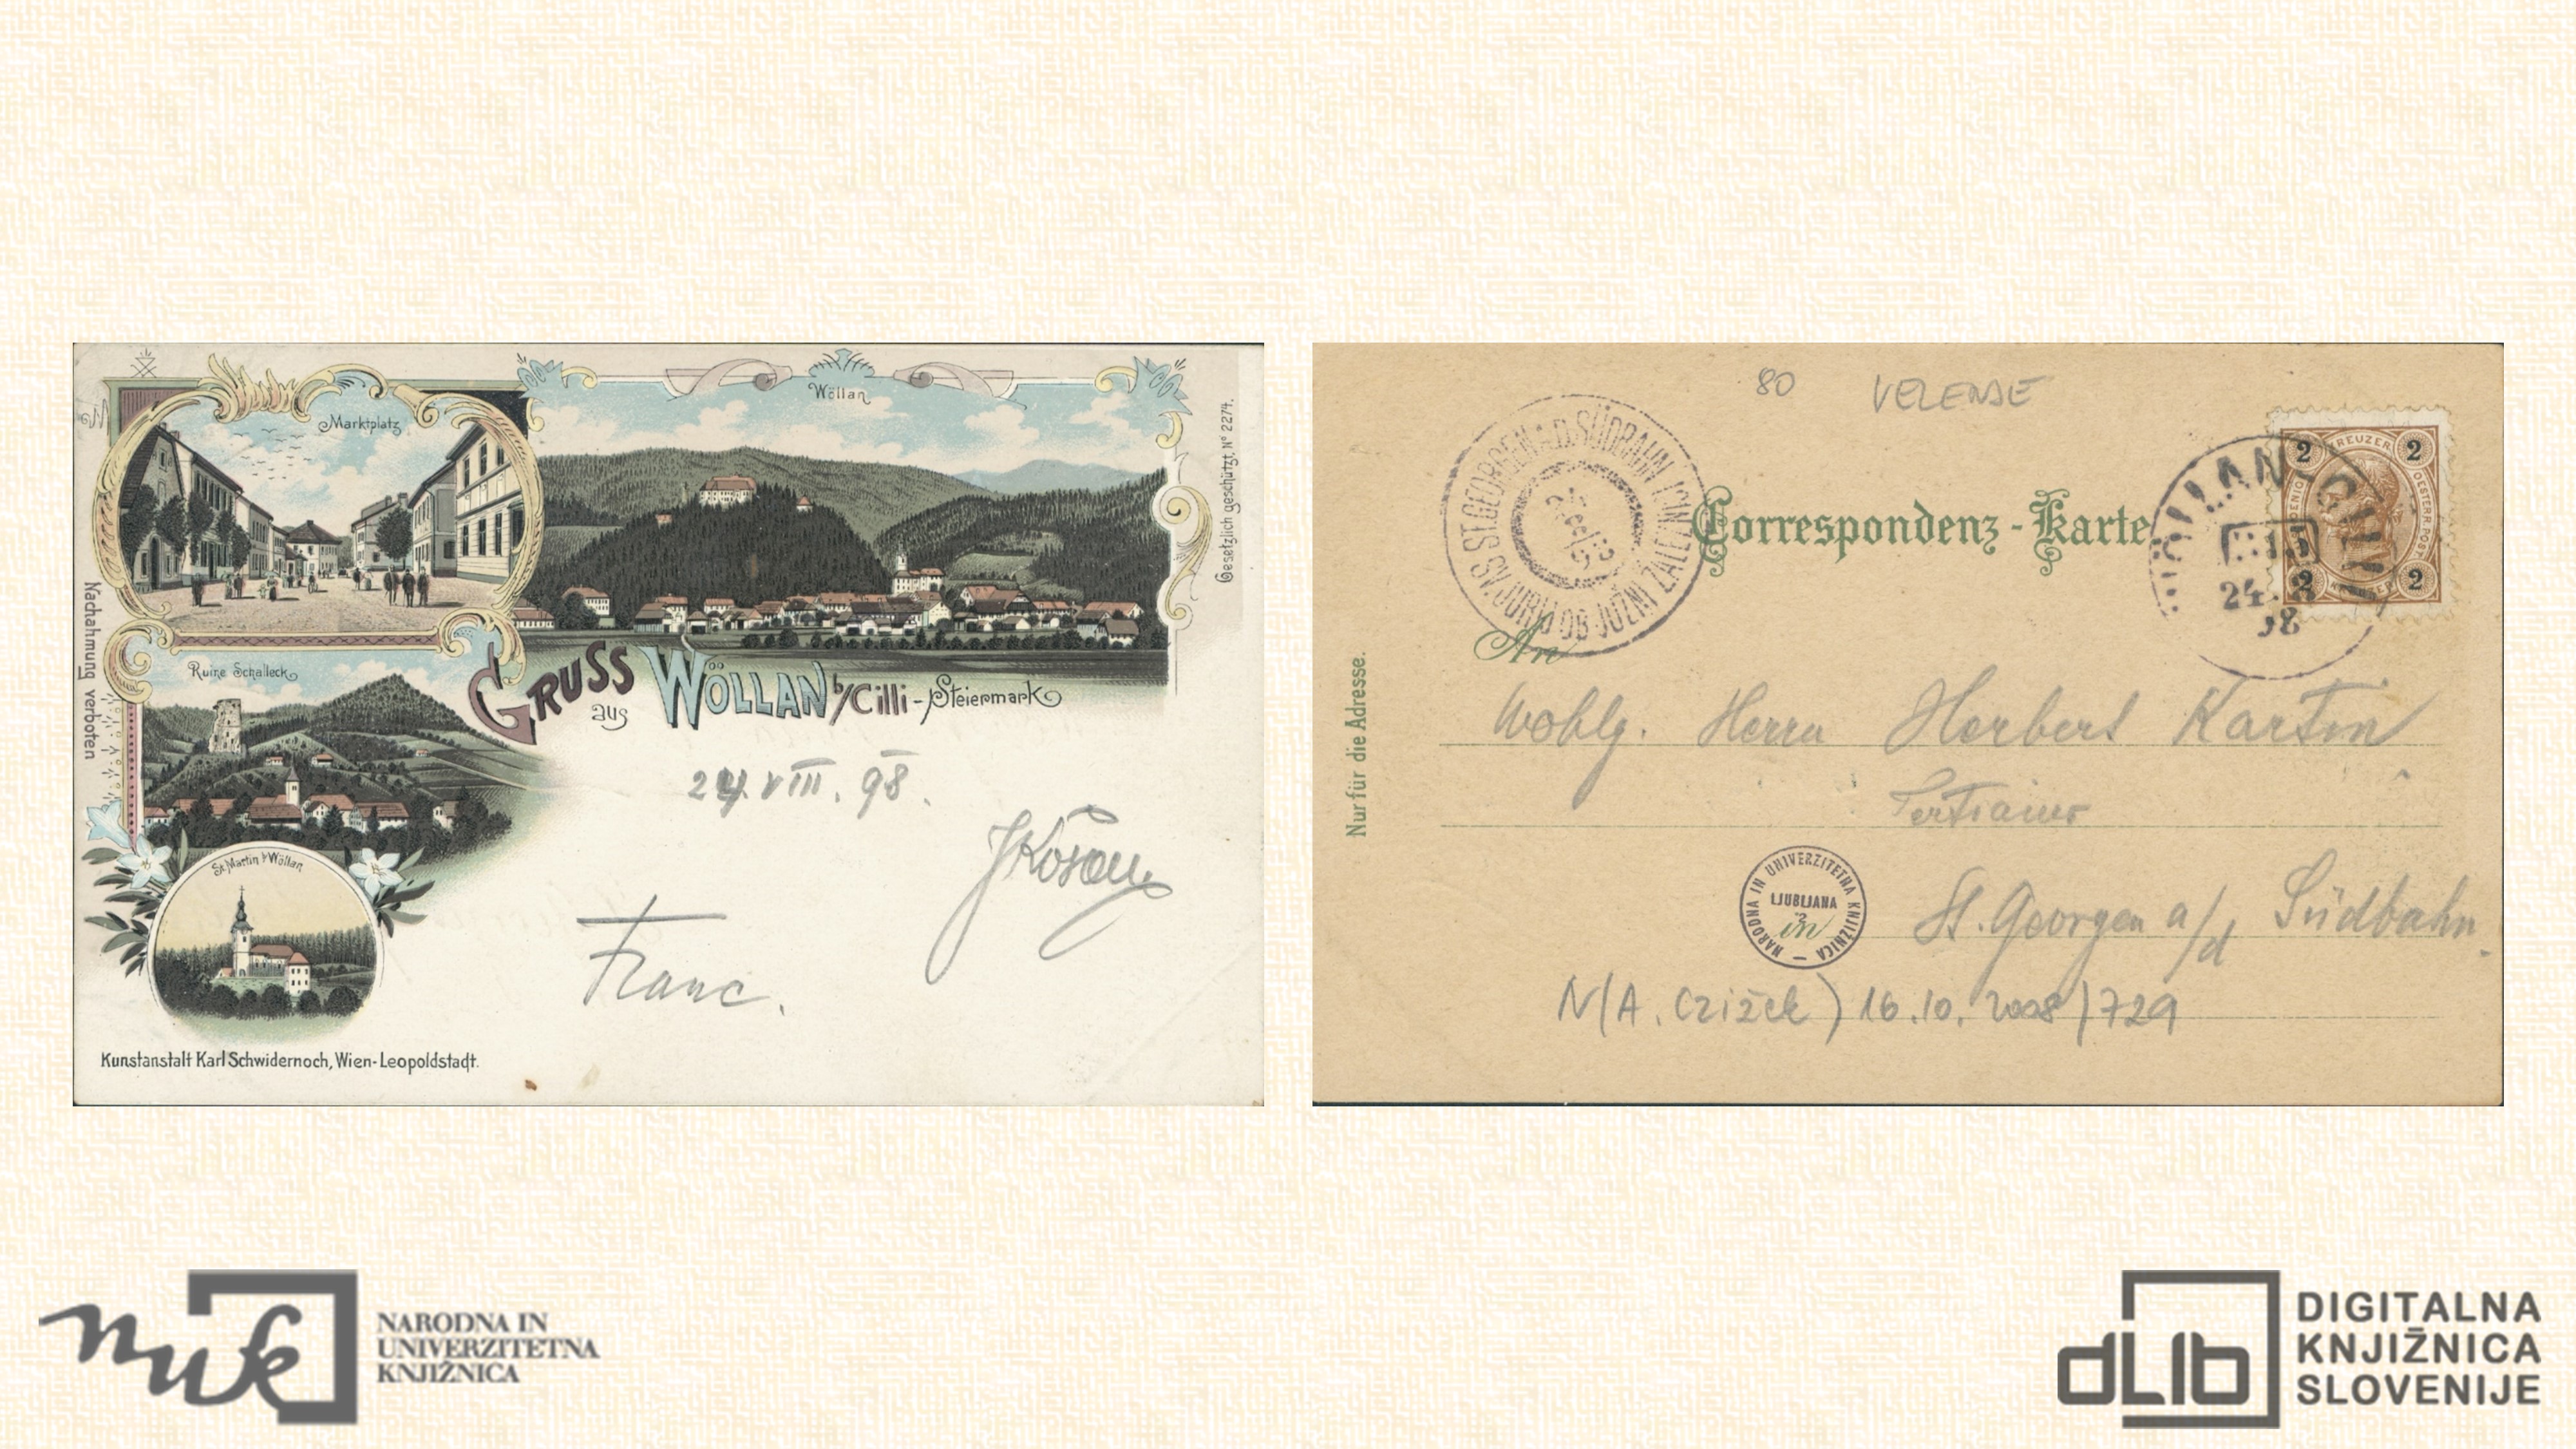 Marktplatz
Wöllan
Ruine Schalleck
St. Martin b/Wöllan
GRUSS
aus
WÖLLAN b/Cilli-Steiermark
24. VIII. 98.
Franc.
Nachahmung verboten
Gesetzlich geschützt. Nº 2274.
Kunstanstalt Karl Schwidernoch, Wien-Leopoldstadt.
80 VELENJE
ST. GEORGEN A.D. SÜDBAHN
SV. JURIJ OB JUŽNI ŽALEZNICI
Correspondenz-Karte
WÖLLAN CILLI
24. 8
98
2 KREUZER 2
2 2
An
Nur für die Adresse.
Wohlg. Herrn Herbert Kartin
St. Georgen a/d Südbahn.
NARODNA IN UNIVERZITETNA KNJIŽNICA
LJUBLJANA
in
N(A. Czižek) 16.10.2008/729
nuk
NARODNA IN
UNIVERZITETNA
KNJIŽNICA
dLib
DIGITALNA
KNJIŽNICA
SLOVENIJE